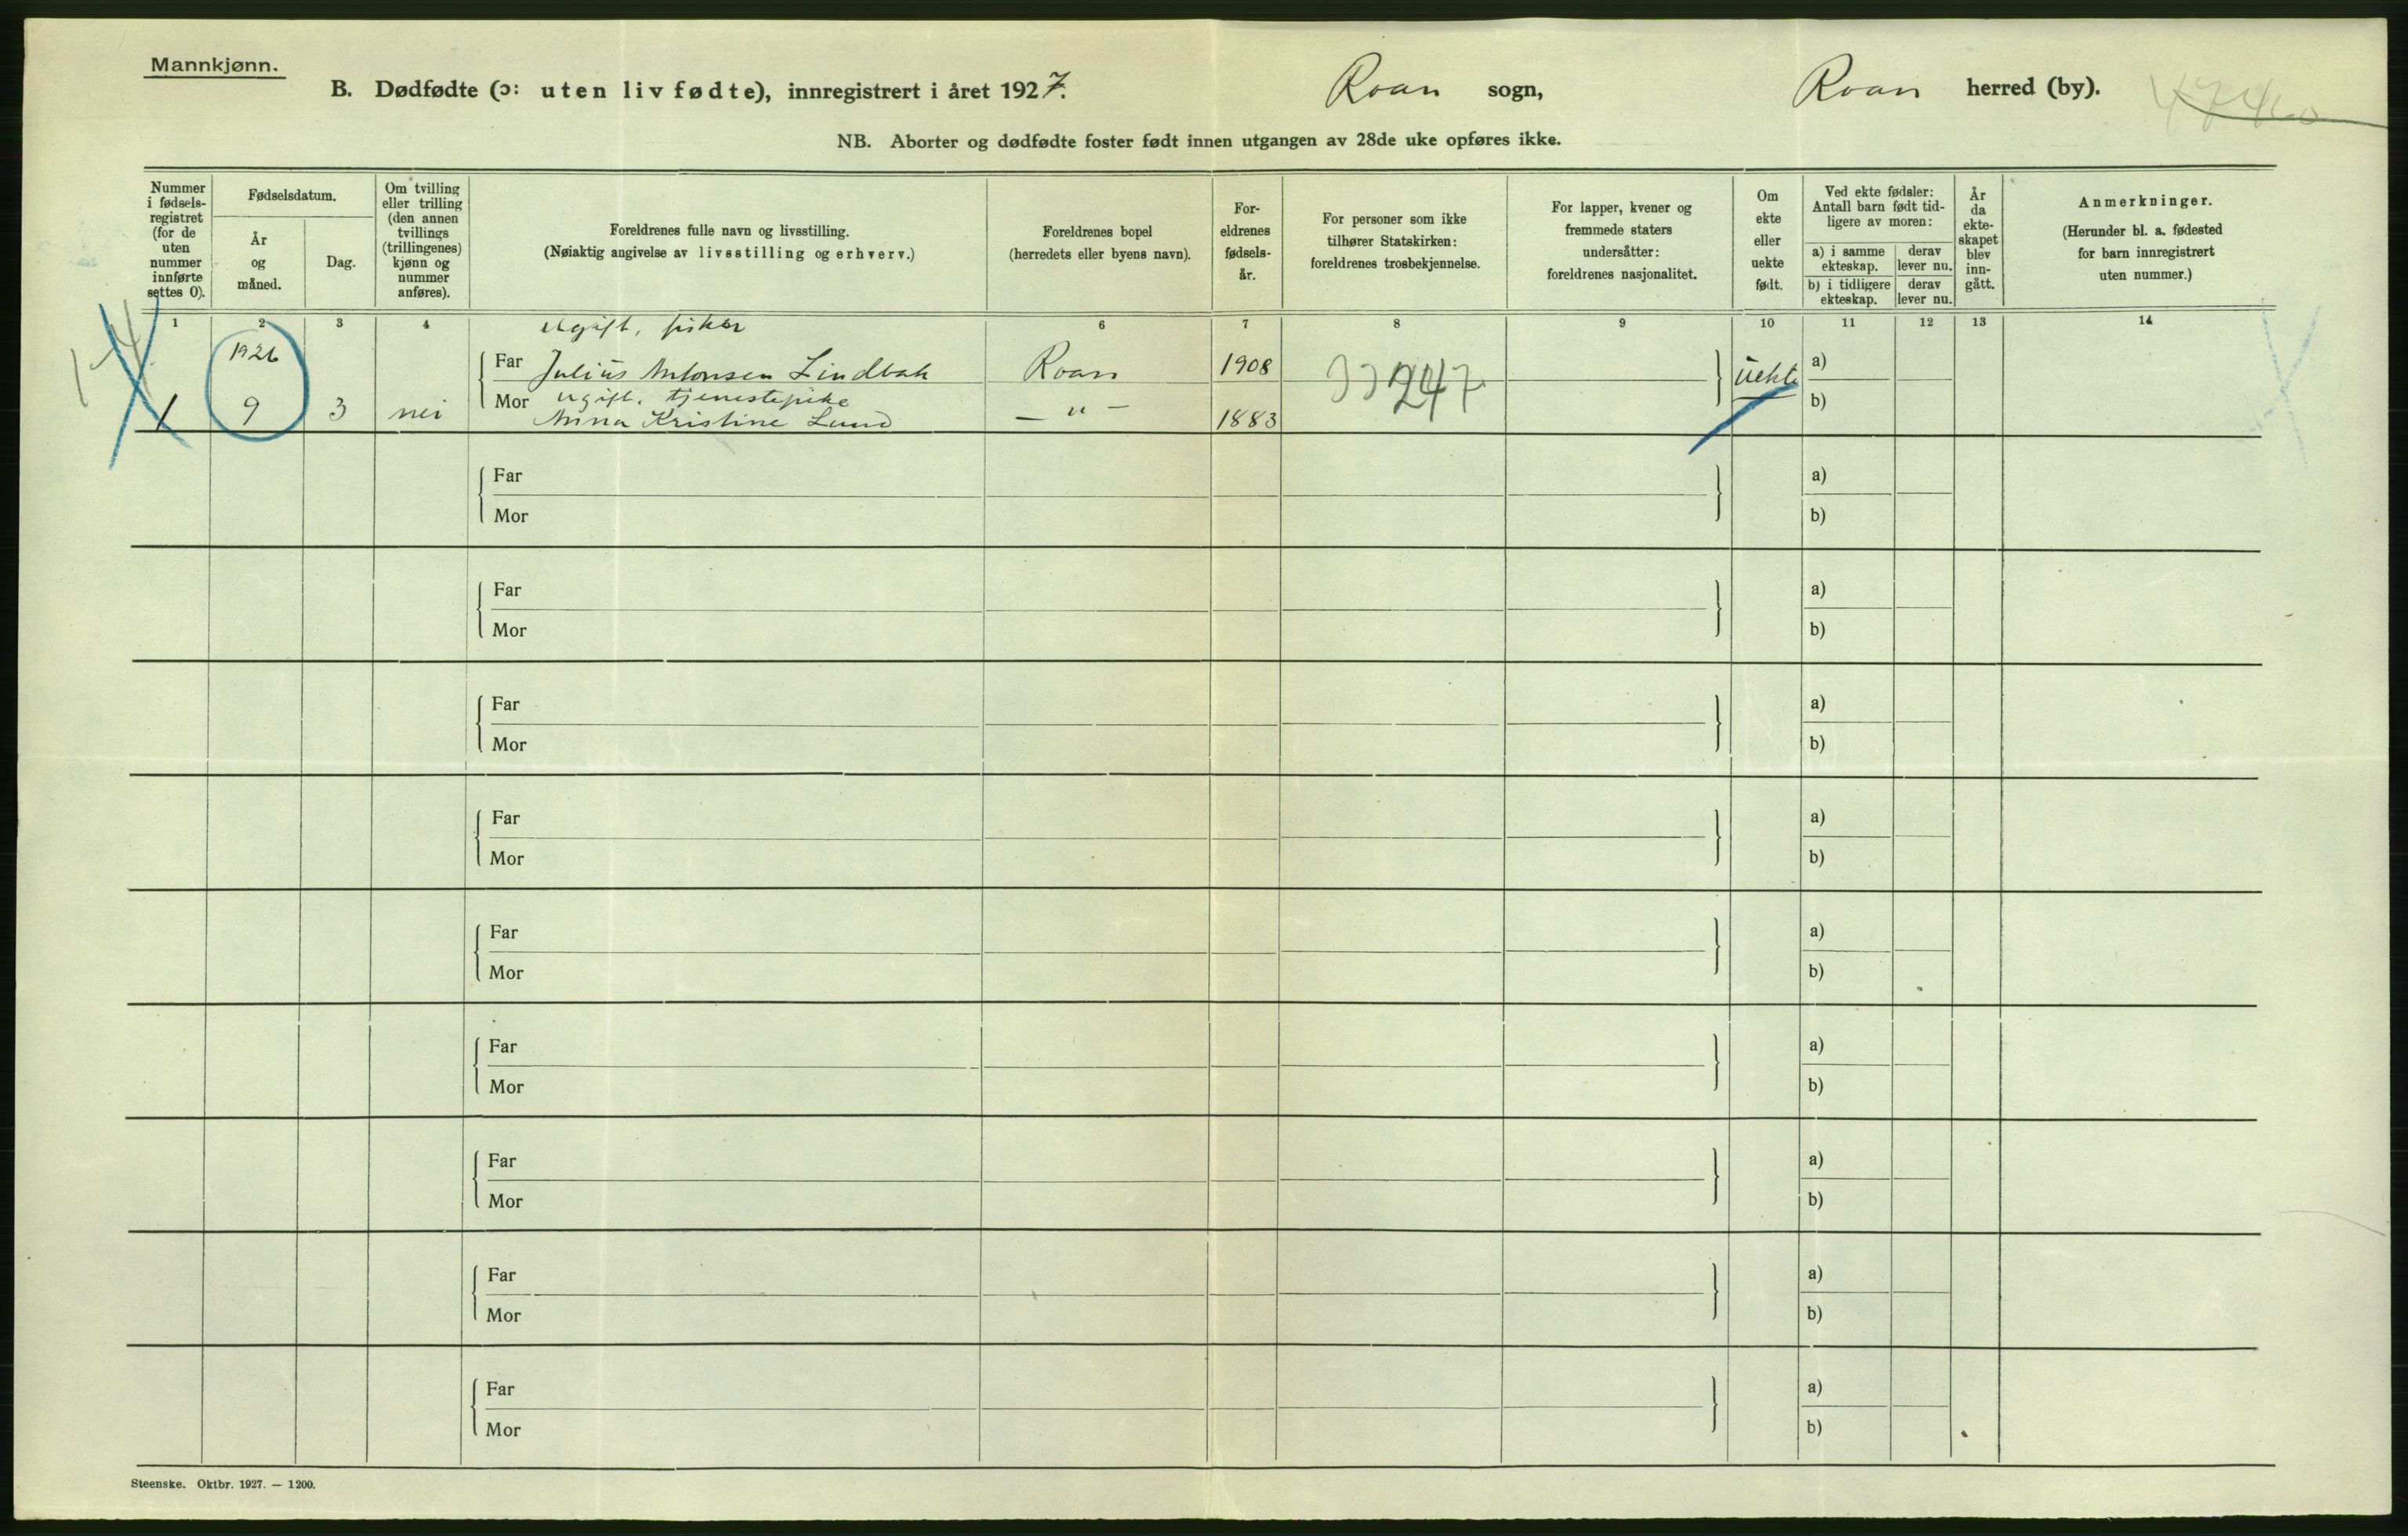 Mannkjønn.
B. Dødfødte (ɔ: uten liv fødte), innregistrert i året 1927. Roan sogn, Roan herred (by).
NB. Aborter og dødfødte foster født innen utgangen av 28de uke opføres ikke.
Nummer i fødsels-registret (for de uten nummer innførte settes 0).
Fødselsdatum.
År og måned.
Dag.
Om tvilling eller trilling (den annen tvillings (trillingenes) kjønn og nummer anføres).
Foreldrenes fulle navn og livsstilling.
(Nøiaktig angivelse av livsstilling og erhverv.)
Foreldrenes bopel
(herredets eller byens navn).
For-eldrenes fødsels-år.
For personer som ikke tilhører Statskirken: foreldrenes trosbekjennelse.
For lapper, kvener og fremmede staters undersåtter: foreldrenes nasjonalitet.
Om ekte eller uekte født.
Ved ekte fødsler: Antall barn født tid-ligere av moren:
a) i samme ekteskap.
derav lever nu.
b) i tidligere ekteskap.
derav lever nu.
År da ekte-skapet blev inn-gått.
Anmerkninger.
(Herunder bl. a. fødested for barn innregistrert uten nummer.)
1 2 3 4 6 7 8 9 10 11 12 13 14
ugift, fisker
1926
Far Julius Antonsen Lindbak Roan 1908 uekte a)
ugift. tjenestepike
1 9 3 nei Mor Anna Kristine Lund — " — 1883 b)
247
Far a)
Mor b)
Far a)
Mor b)
Far a)
Mor b)
Far a)
Mor b)
Far a)
Mor b)
Far a)
Mor b)
Far a)
Mor b)
Far a)
Mor b)
Far a)
Mor b)
Steenske. Oktbr. 1927. — 1200.